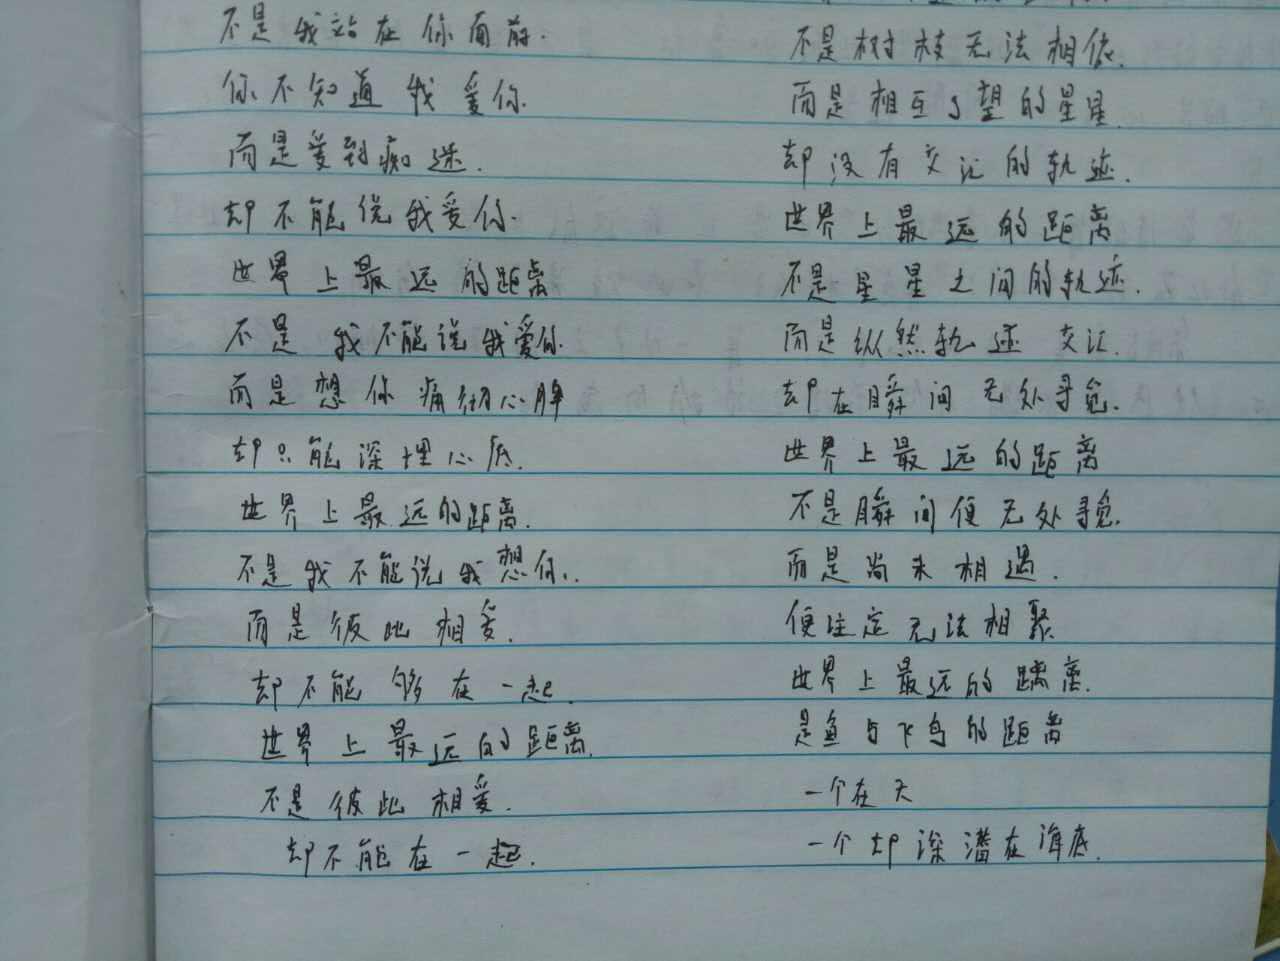 不是我站在你面前.
你不知道我爱你.
而是爱到痴迷.
却不能说我爱你.
世界上最远的距离
不是我不能说我爱你.
而是想你痛彻心脾
却只能深埋心底.
世界上最远的距离.
不是我不能说我想你.
而是彼此相爱.
却不能够在一起.
世界上最远的距离.
不是彼此相爱.
却不能在一起.
不是树枝无法相依.
而是相互了望的星星.
却没有交汇的轨迹.
世界上最远的距离
不是星星之间的轨迹.
而是纵然轨迹交汇.
却在瞬间无处寻觅.
世界上最远的距离
不是瞬间便无处寻觅.
而是尚未相遇.
便注定无法相聚.
世界上最远的距离.
是鱼与飞鸟的距离
一个在天
一个却深潜在海底.